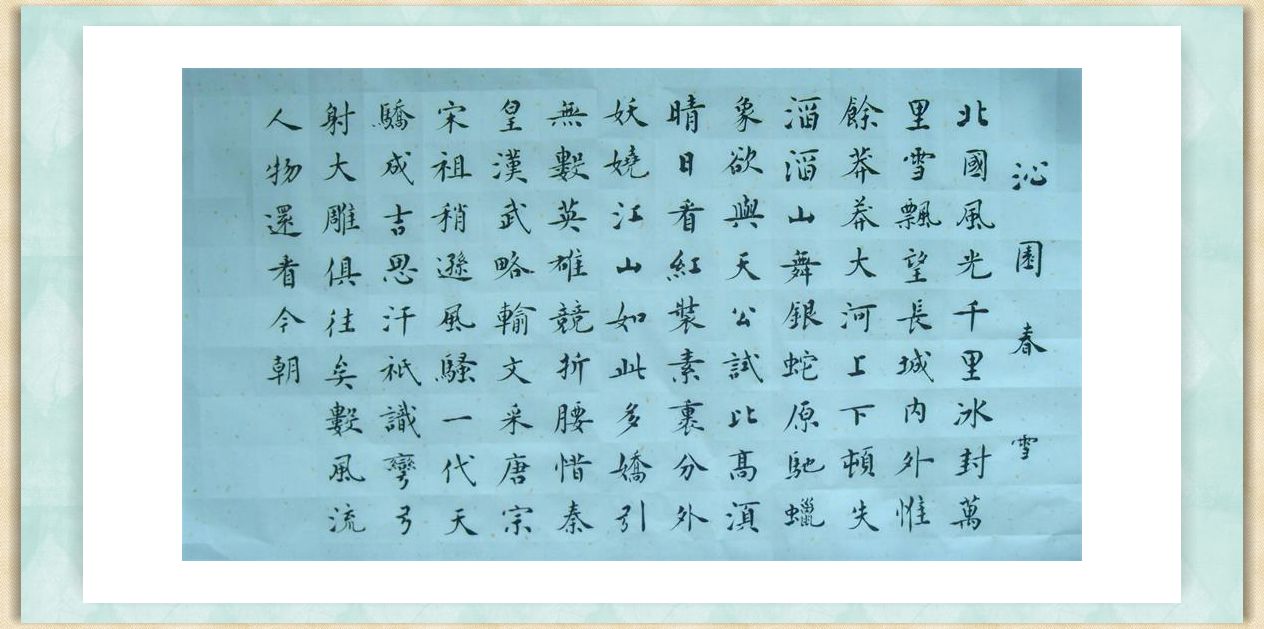 沁園春 雪
北國風光千里冰封萬
里雪飄望長城内外惟
餘莽莽大河上下頓失
滔滔山舞銀蛇原馳蠟
象欲與天公試比高須
晴日看紅裝素裹分外
妖嬈江山如此多嬌引
無數英雄競折腰惜秦
皇漢武略輸文采唐宗
宋祖稍遜風騷一代天
驕成吉思汗祇識彎弓
射大雕俱往矣數風流
人物還看今朝